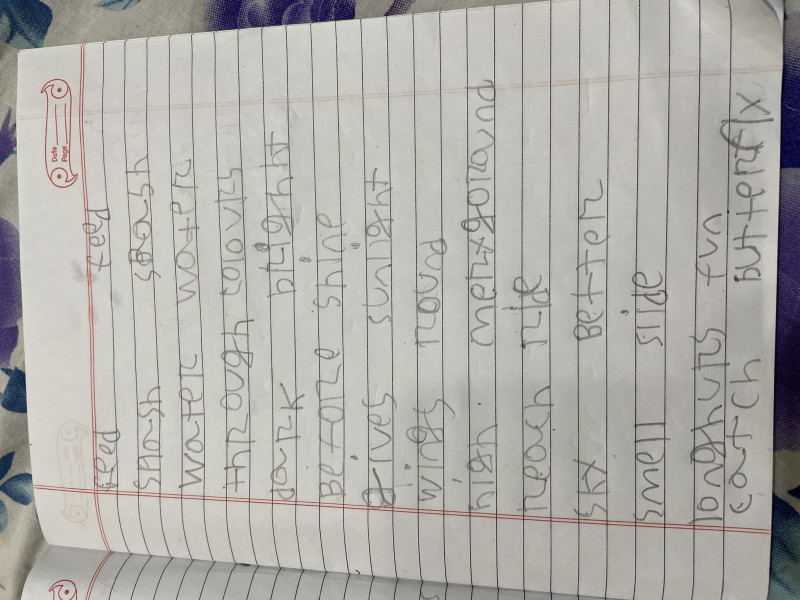 Date
Page
feed feed
spash spash
water water
through colours
dark bright
Before shine
gives sunlight
wings round
high. merygoround
reach ride
sky Better
smell slide
longhurs fun
catch butterfly